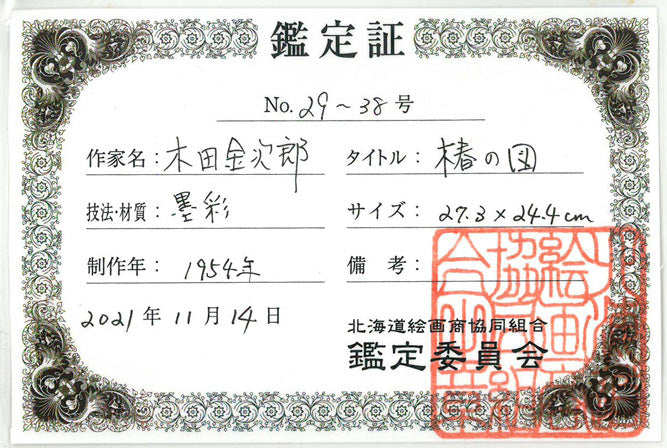 鑑定証
No. 29〜38号
作家名：木田金次郎
タイトル：椿の図
技法・材質：墨彩
サイズ：27.3×24.4cm
制作年：1954年
備考：
2021年11月14日
北海道絵画商協同組合
鑑定委員会